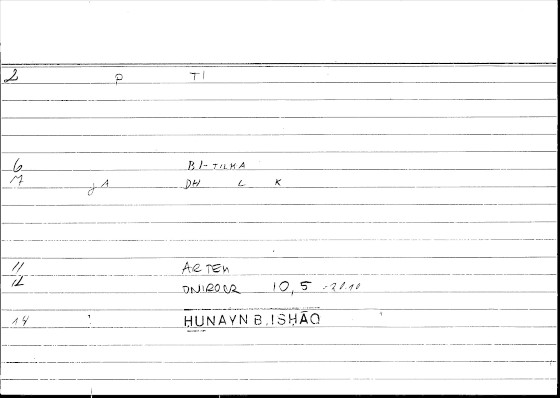 2 P TI
6 BI-TILKA
7 jA DH L K
11 ARTEM
12 ONIROCR 10,5
14 HUNAYN B. ISHĀQ